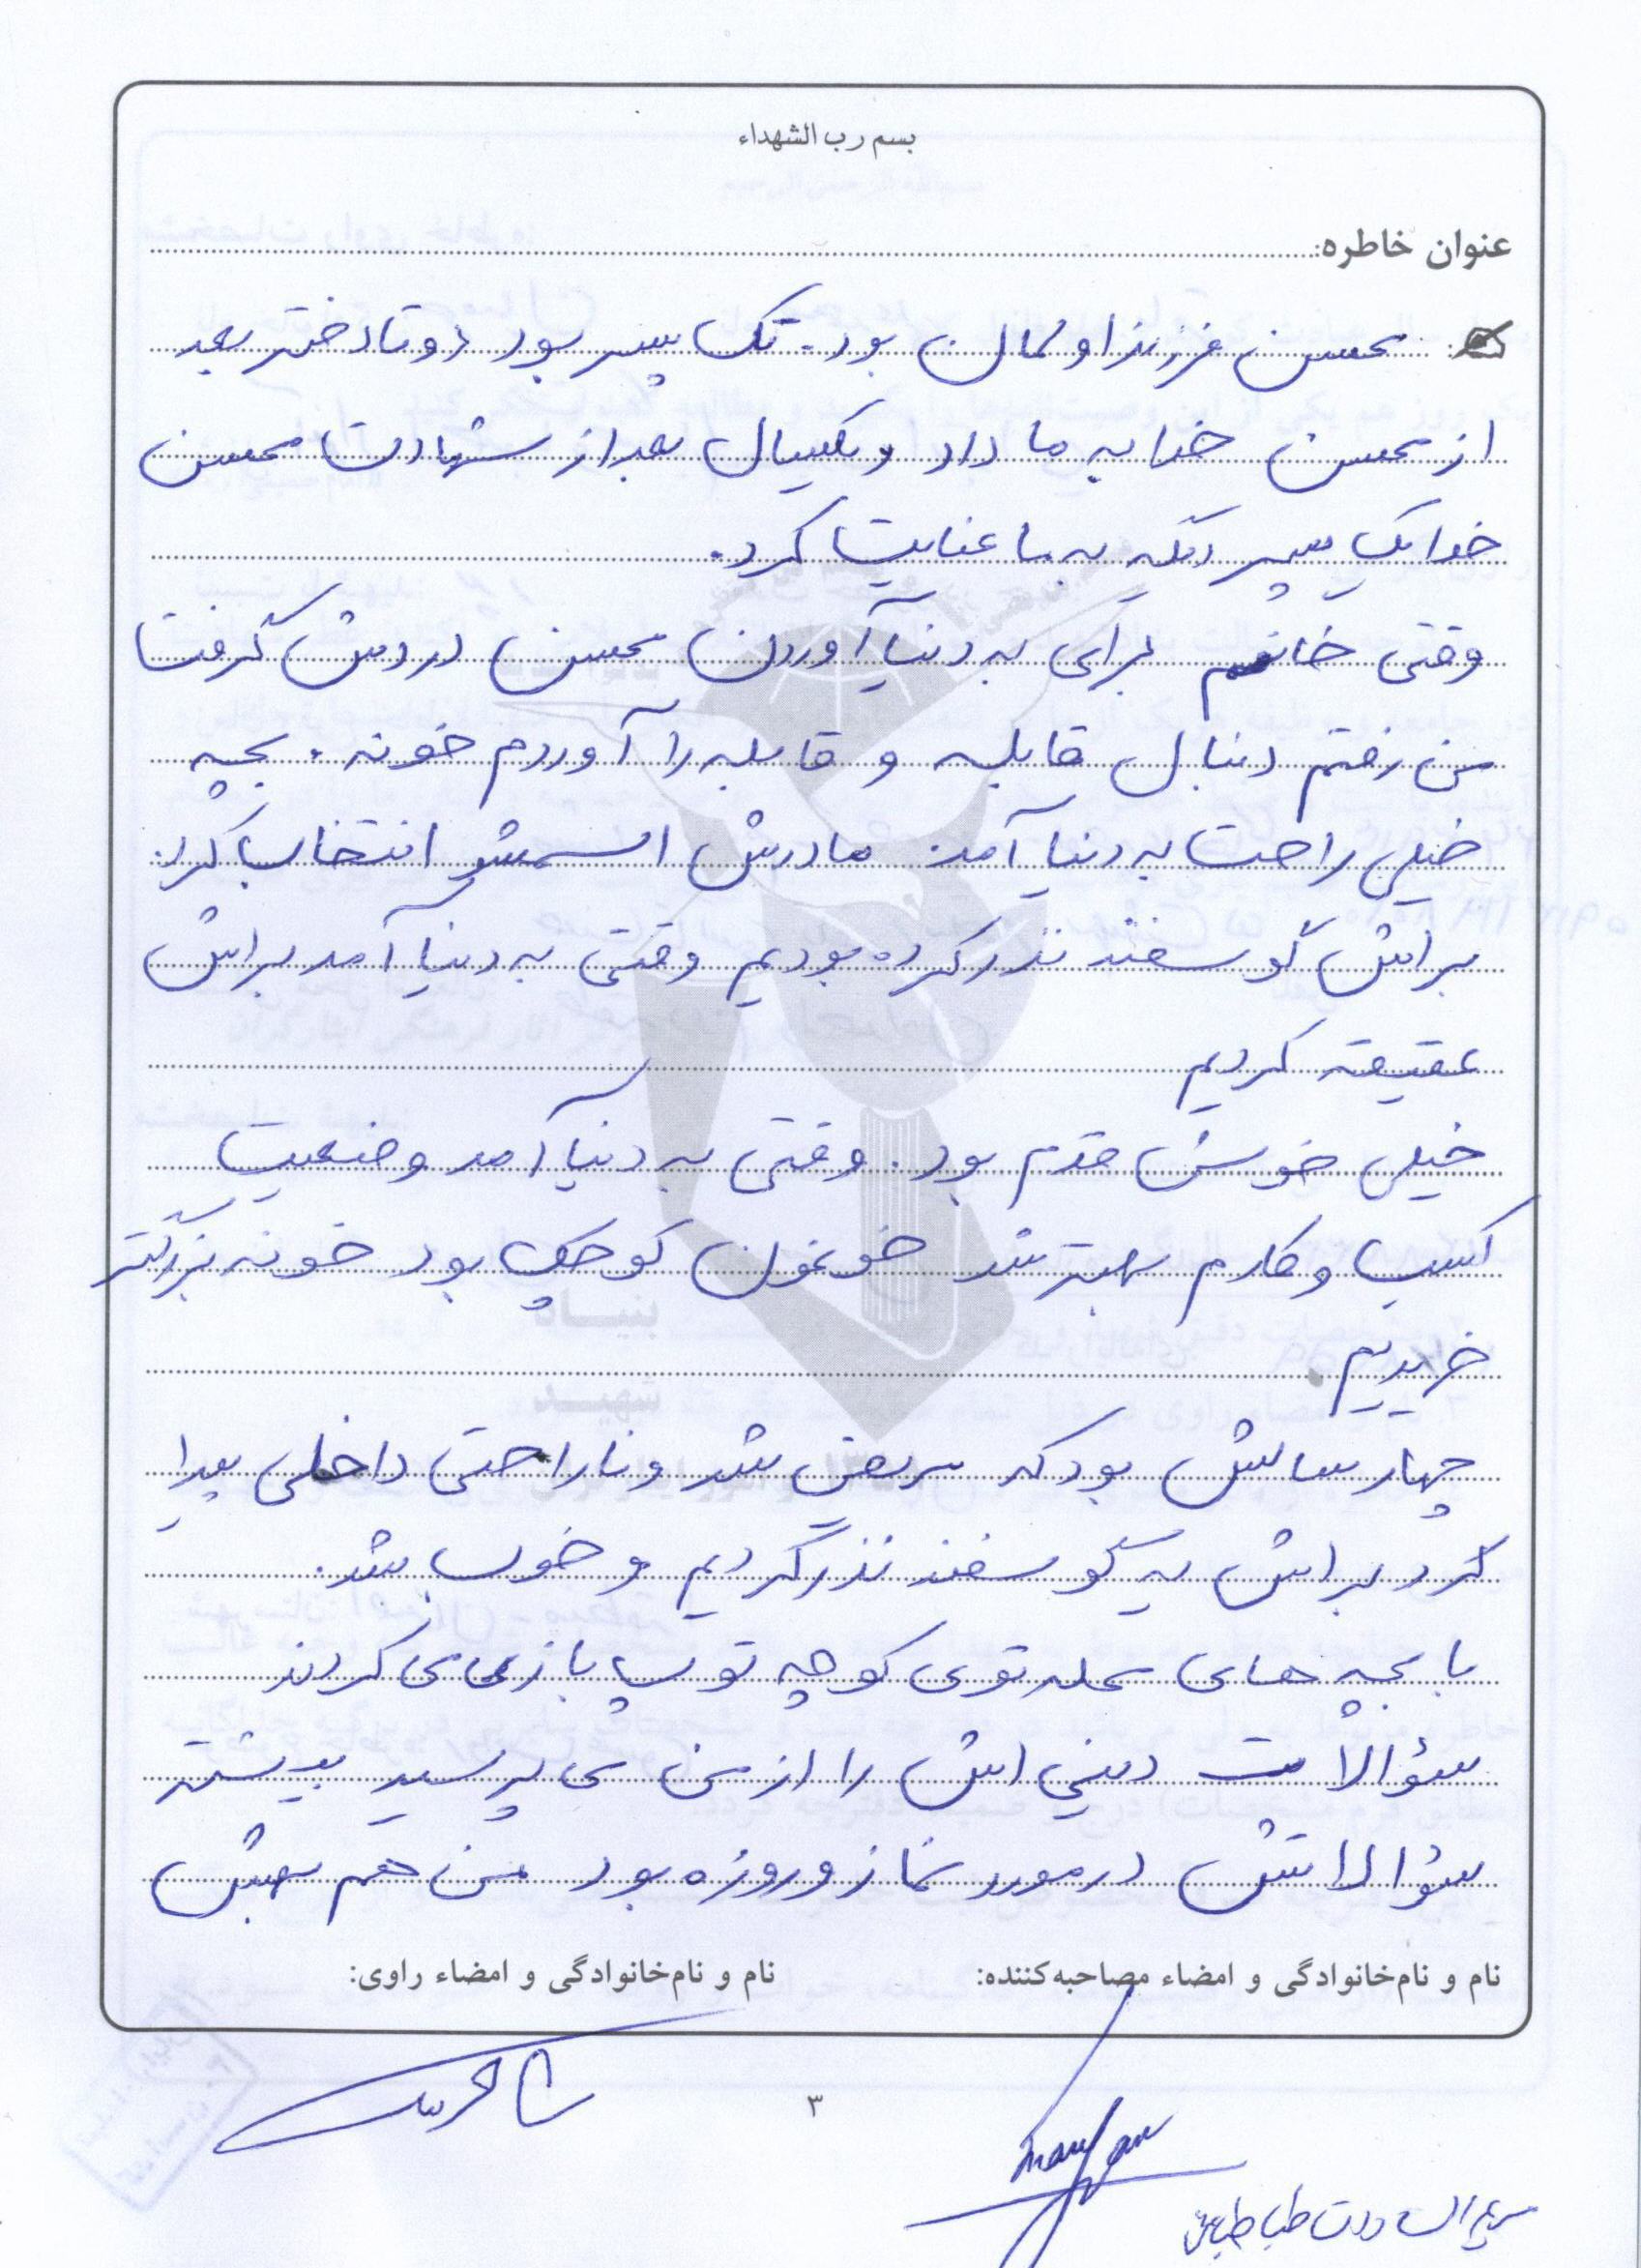 بسم رب الشهداء
عنوان خاطره:
محسن فرزند اولمان بود. تک پسر بود دوتا دختر بعد
از محسن خدا به ما داد و یکسال بعد از شهادت محسن
خدا یک پسر دیگه به ما عنایت کرد.
وقتی خانمم برای به دنیا آوردن محسن دردش گرفت
من رفتم دنبال قابله و قابله را آوردم خونه. بچه
خیلی راحت به دنیا آمد. مادرش اسمشو انتخاب کرد.
براش گوسفند نذر کرده بودیم وقتی به دنیا آمد براش
عقیقه کردیم
خیلی خوش قدم بود. وقتی به دنیا آمد وضعیت
کسب و کارم بهتر شد خونمون کوچک بود خونه بزرگتر
خریدیم
چهار سالش بود که مریض شد و ناراحتی داخلی پیدا
کرد براش یه گوسفند نذر کردیم و خوب شد.
با بچه های محله توی کوچه توپ بازی می کردند
سؤالات دینی اش را از من می پرسید بیشتر
سؤالاتش در مورد نماز و روزه بود من هم بهش
نام و نام‌خانوادگی و امضاء مصاحبه‌کننده:
نام و نام‌خانوادگی و امضاء راوی:
۳
مریم السادات طباطبایی